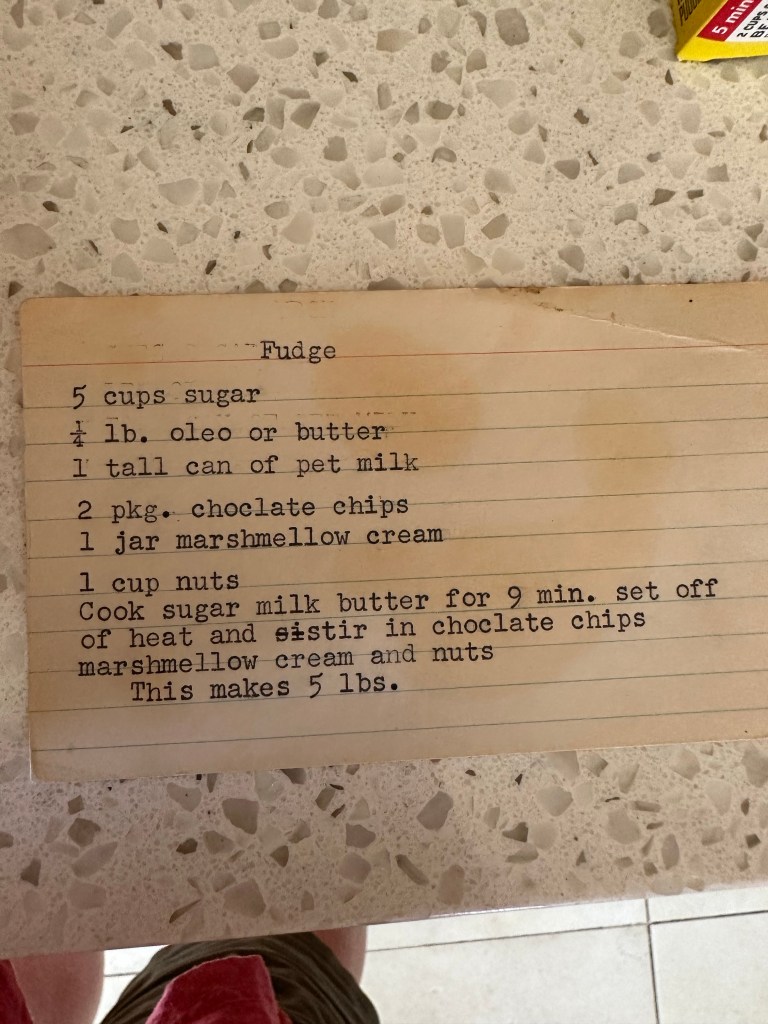 5 min
2 CUPS
Fudge
5 cups sugar
¼ lb. oleo or butter
1 tall can of pet milk
2 pkg. choclate chips
1 jar marshmellow cream
1 cup nuts
Cook sugar milk butter for 9 min. set off
of heat and stir in choclate chips
marshmellow cream and nuts
This makes 5 lbs.